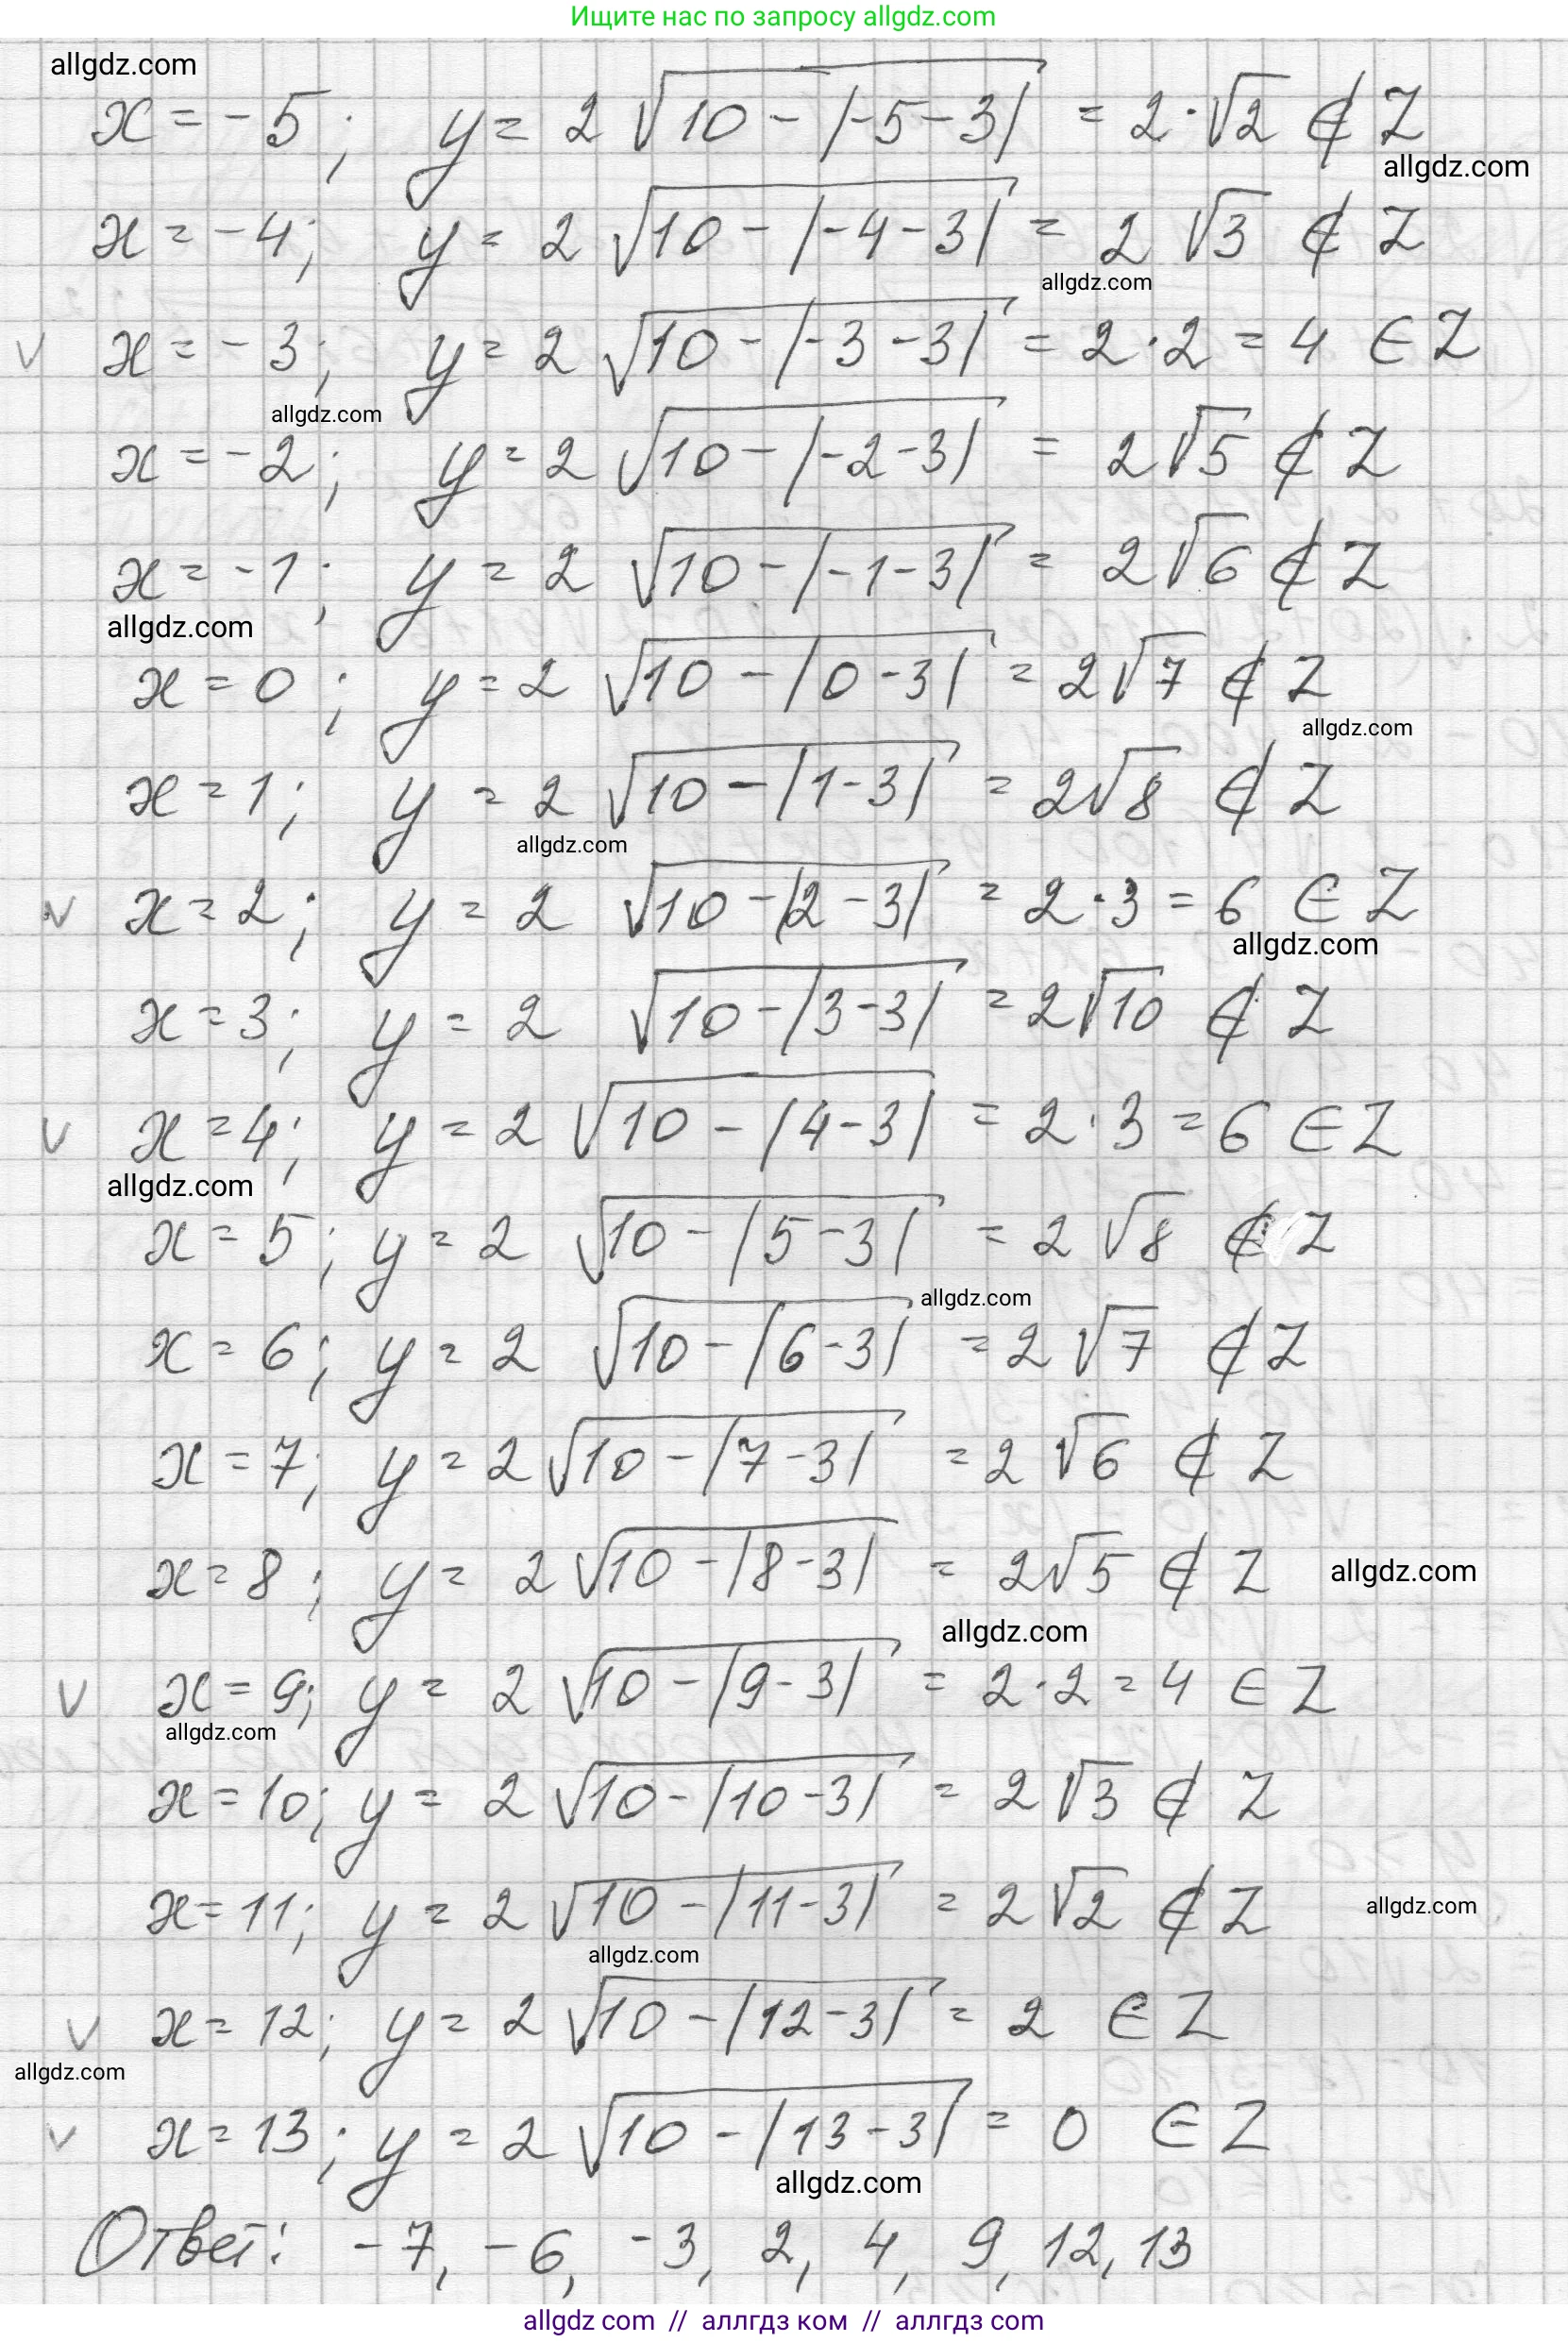 Ищите нас по запросу allgdz.com
allgdz.com
x = -5; y = 2 √10 - |-5 - 3| = 2·√2 ∉ Z
allgdz.com
x = -4; y = 2 √10 - |-4 - 3| = 2 √3 ∉ Z
allgdz.com
V x = -3; y = 2 √10 - |-3 - 3| = 2·2 = 4 ∈ Z
allgdz.com
x = -2; y = 2 √10 - |-2 - 3| = 2√5 ∉ Z
x = -1; y = 2 √10 - |-1 - 3| = 2√6 ∉ Z
allgdz.com
x = 0; y = 2 √10 - |0 - 3| = 2√7 ∉ Z
allgdz.com
x = 1; y = 2 √10 - |1 - 3| = 2√8 ∉ Z
allgdz.com
V x = 2; y = 2 √10 - |2 - 3| = 2·3 = 6 ∈ Z
allgdz.com
x = 3; y = 2 √10 - |3 - 3| = 2√10 ∉ Z
V x = 4; y = 2 √10 - |4 - 3| = 2·3 = 6 ∈ Z
allgdz.com
x = 5; y = 2 √10 - |5 - 3| = 2 √8 ∉ Z
allgdz.com
x = 6; y = 2 √10 - |6 - 3| = 2 √7 ∉ Z
x = 7; y = 2 √10 - |7 - 3| = 2 √6 ∉ Z
x = 8; y = 2 √10 - |8 - 3| = 2√5 ∉ Z allgdz.com
allgdz.com
V x = 9; y = 2 √10 - |9 - 3| = 2·2 = 4 ∈ Z
allgdz.com
x = 10; y = 2 √10 - |10 - 3| = 2 √3 ∉ Z
x = 11; y = 2 √10 - |11 - 3| = 2 √2 ∉ Z allgdz.com
allgdz.com
V x = 12; y = 2 √10 - |12 - 3| = 2 ∈ Z
allgdz.com
V x = 13; y = 2 √10 - |13 - 3| = 0 ∈ Z
allgdz.com
Ответ: -7, -6, -3, 2, 4, 9, 12, 13
allgdz com // аллгдз ком // аллгдз com